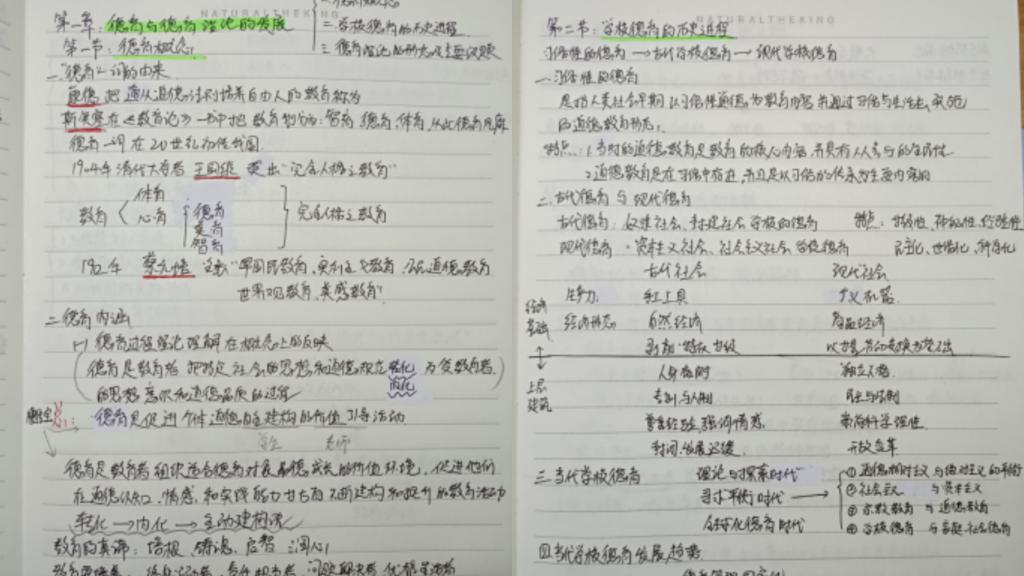 NATURALTHEKING
第一章：德育与德育理论的发展
第一节：德育概念
二.学校德育的历史进程
三.德育理论的形态及主要议题
一."德育"一词的由来
康德 把遵从道德法则培养自由人的教育称为
斯宾塞在《教育论》一书中把教育划分为：智育 德育 体育，从此德育
德育一词在20世纪初传我国
1904年 清代大学者 王国维 提出"完全人格之教育"
教育 体育 心育 德育 美育 智育 完全人格之教育
1912年 蔡元培 主张"军国民教育，实利主义教育，公民道德教育
世界观教育、美感教育"
二.德育内涵
德育过程理论理解在概念上的反映
德育是教育者把特定社会的思想和道德规范转化 为受教育者
内化
的思想意识和道德品质的过程
德育是促进个体道德自主建构的价值引导活动
学生 老师
德育是教育者组织适合德育对象品德成长的价值环境，促进他们
在道德认知、情感、和实践能力等方面不断建构和提升的教育活动
转化→内化→主动建构说
教育的真谛：启智 润心
NATURALTHEKING
第二节：学校德育的历史进程
习俗性的德育→古代学校德育→现代学校德育
一.习俗性的德育
是指人类社会早期以习俗性道德为教育内容并通过习俗与生活去实施
的道德教育形态
特点：1.当时的道德教育是教育的核心内容，并具有人人参与的全民性
2.道德教育是在习俗中存在，并且是以习俗的传承为主要内容的
二.古代德育与现代德育
古代德育：奴隶社会、封建社会学校的德育 特点：等级性、神秘性、经验性
现代德育：资本主义社会、社会主义社会学校德育 民主化、世俗化、科学化
古代社会 现代社会
生产力 手工工具 大工业机器
经济形态 自然经济 商品经济
经济基础
上层建筑
人身依附 独立人格
专制与人制 民主与法制
重经验，强调情感 崇尚科学理性
封闭、发展迟缓 开放变革
三.当代学校德育 理论与探索时代
寻求平衡时代
全球化德育时代
①道德相对主义与绝对主义的平衡
②社会主义与资本主义
③宗教教育与道德教育
④学校德育与家庭、社会德育
四.当代学校德育发展趋势